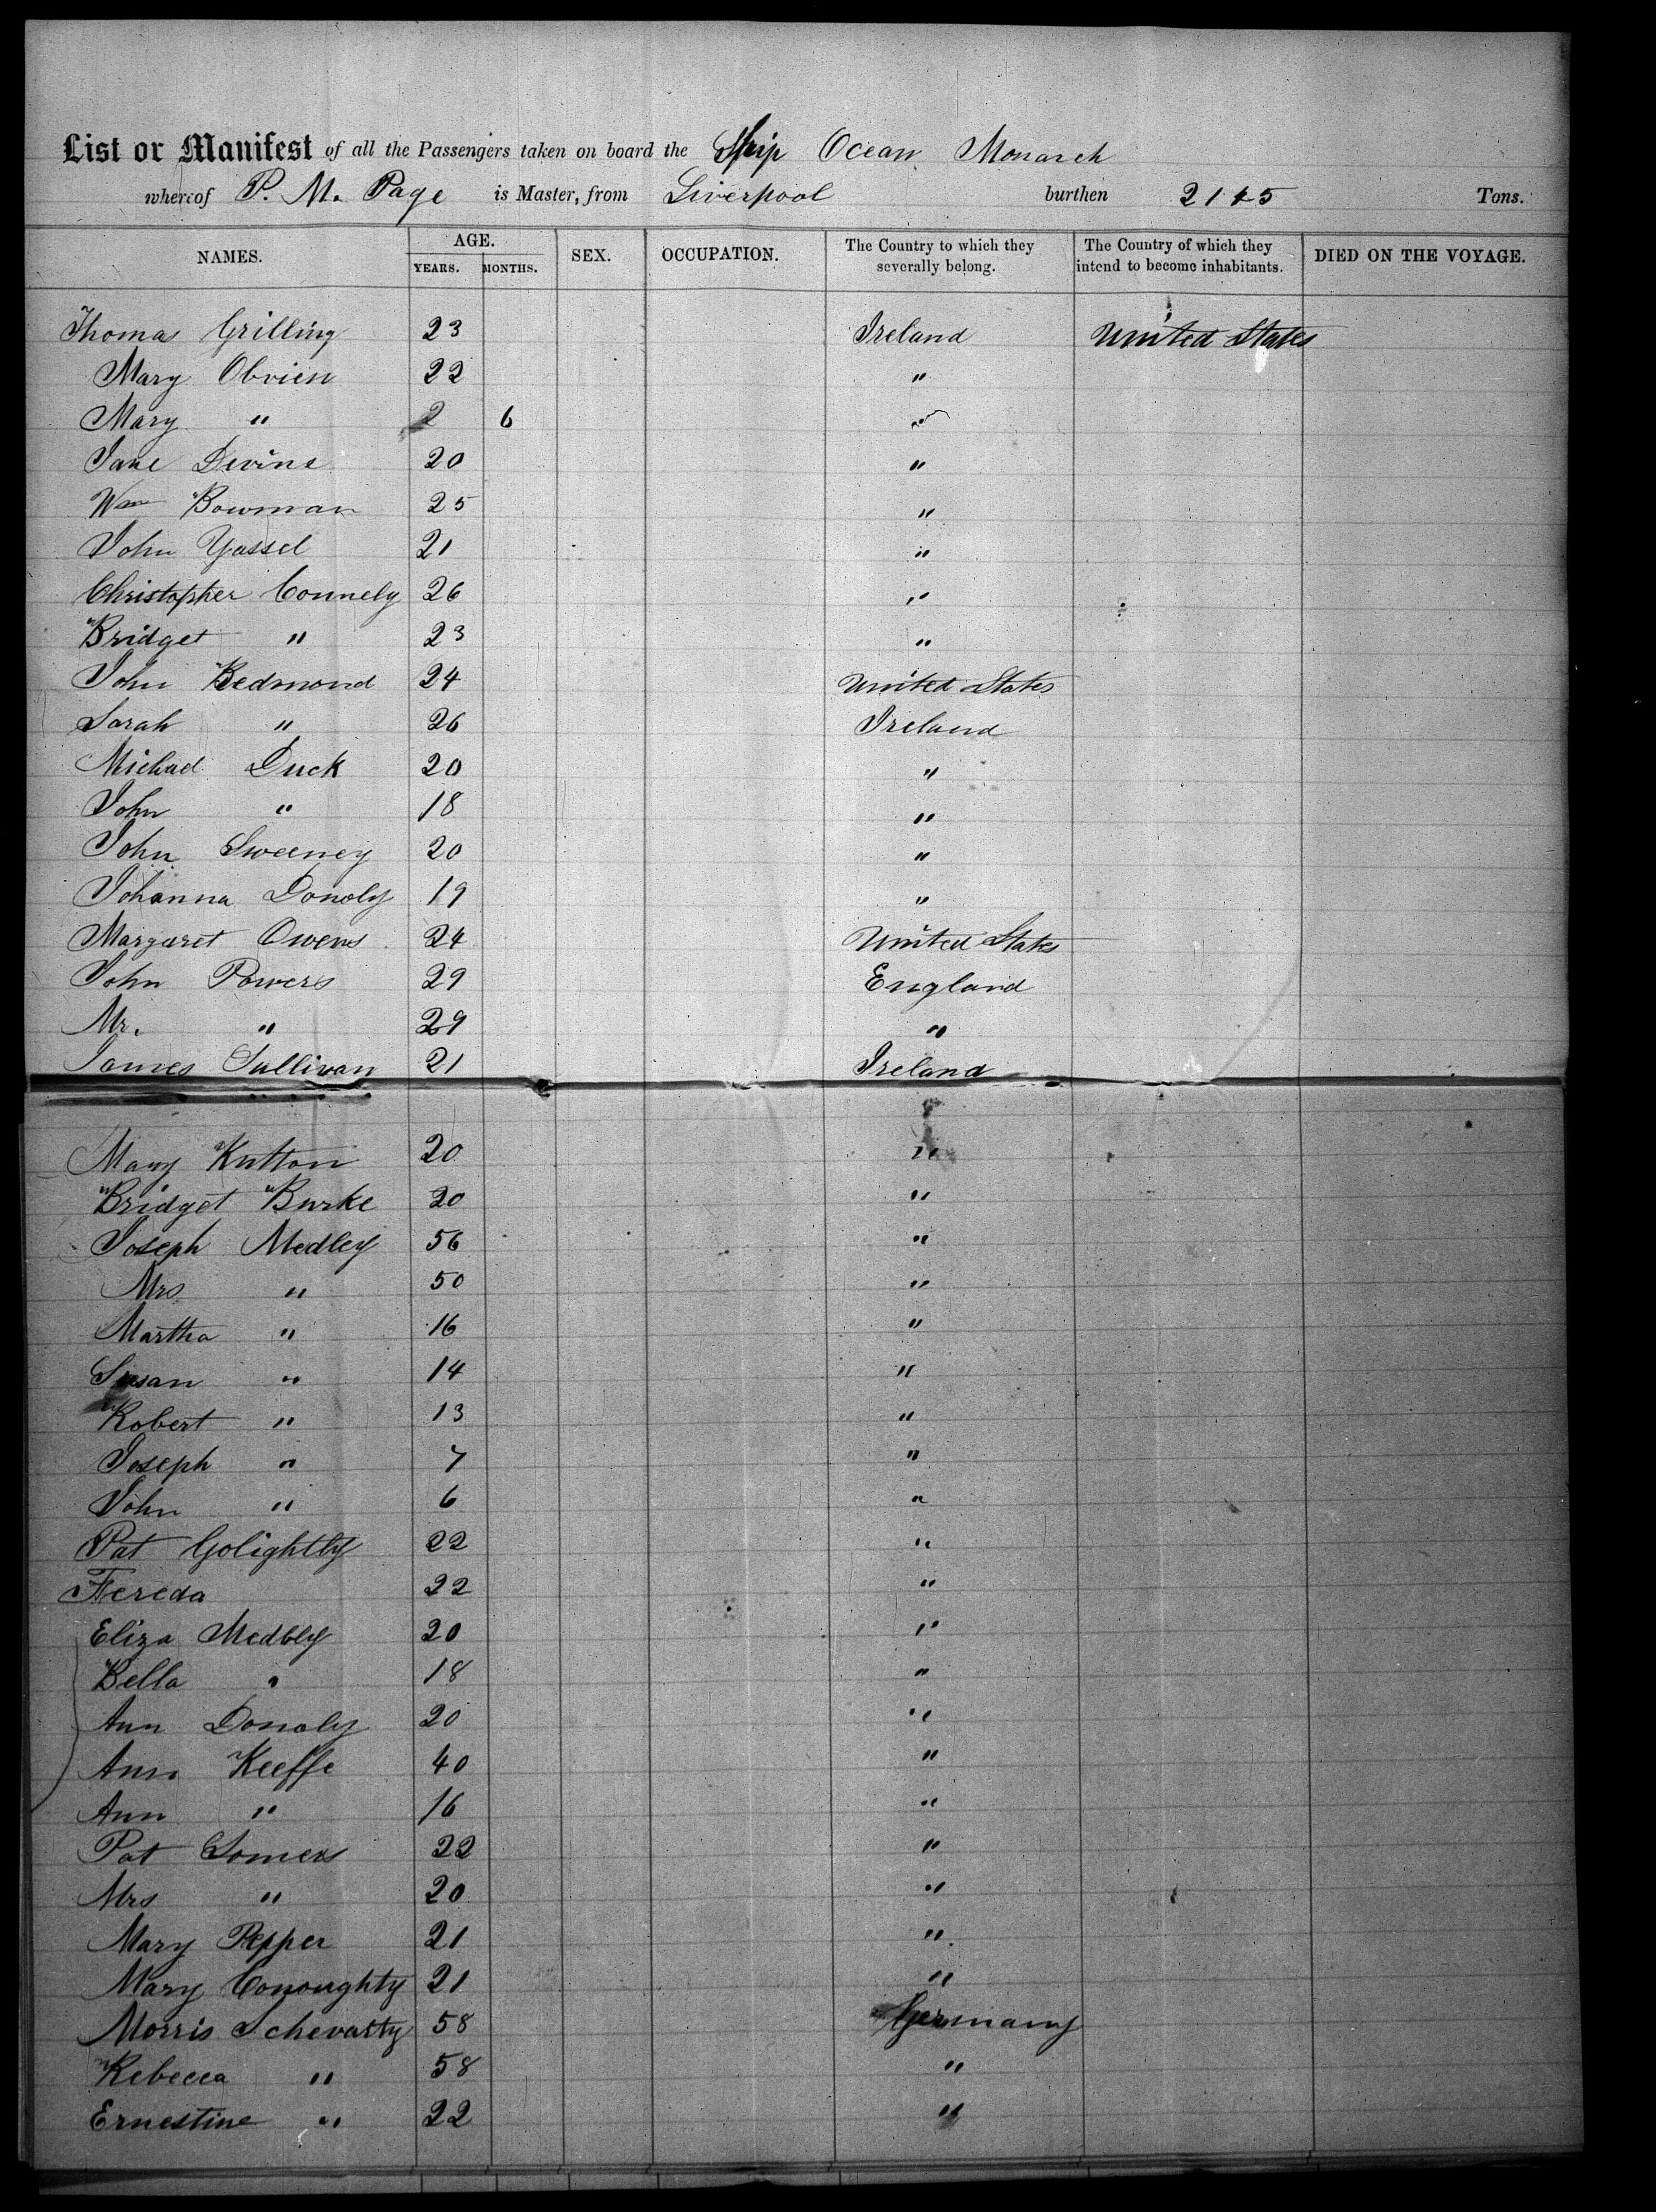 List or Manifest of all the Passengers taken on board the Ship Ocean Monarch
whereof P. M. Page is Master, from Liverpool burthen 2145 Tons.
NAMES. AGE. YEARS. MONTHS. SEX. OCCUPATION. The Country to which they severally belong. The Country of which they intend to become inhabitants. DIED ON THE VOYAGE.
Thomas Grilling 23 Ireland United States
Mary Obrien 22 "
Mary " 2 6 "
Jane Devine 20 "
Wm Bowman 25 "
John Yassel 21 "
Christopher Connely 26 "
Bridget " 23 "
John Redmond 24 United States
Sarah " 26 Ireland
Michael Duck 20 "
John " 18 "
John Sweeney 20 "
Johanna Donoly 19 "
Margaret Owens 24 United States
John Powers 29 England
Mr. " 29 "
James Sullivan 21 Ireland
Mary Kutton 20 "
Bridget Burke 20 "
Joseph Medley 56 "
Mrs " 50 "
Martha " 16 "
Susan " 14 "
Robert " 13 "
Joseph " 7 "
John " 6 "
Pat Golightly 22 "
Fereda 22 "
Eliza Medbly 20 "
Bella " 18 "
Ann Donoly 20 "
Ann Keeffe 40 "
Ann " 16 "
Pat Somers 22 "
Mrs " 20 "
Mary Pepper 21 "
Mary Conoughty 21 "
Morris Schevarty 58 Germany
Rebecca " 58 "
Ernestine " 22 "